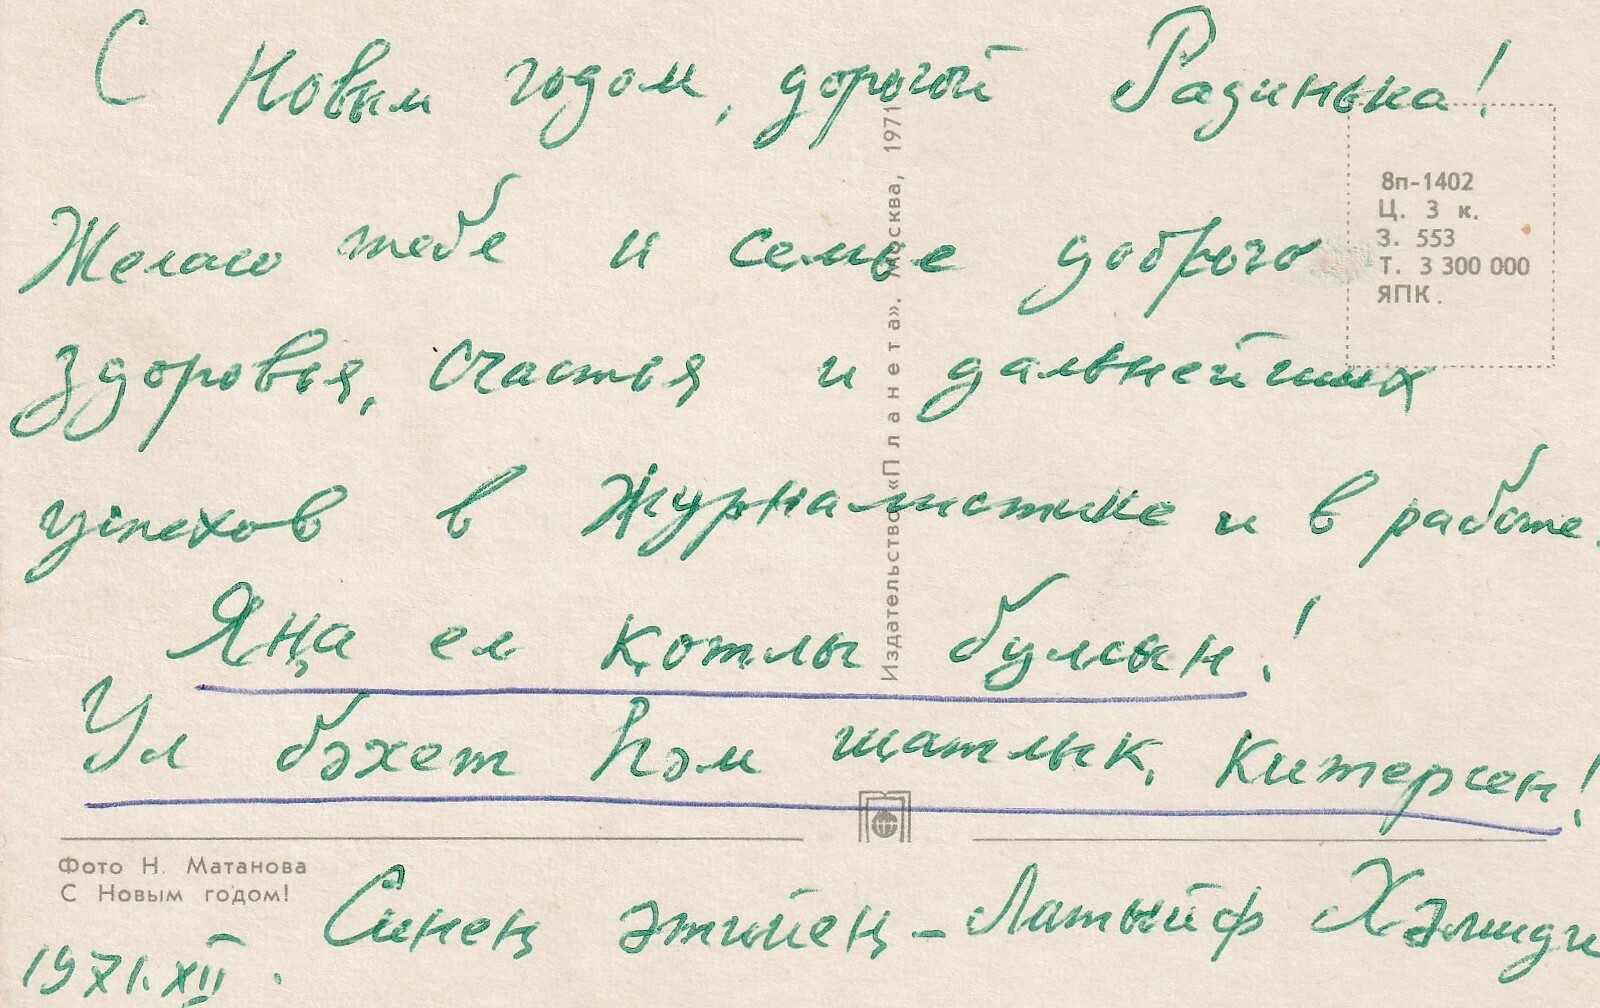 С Новым годом, дорогой Радинька!
Желаю тебе и семье доброго
здоровья, счастья и дальнейших
успехов в журналистике и в работе.
Яңа ел қотлы булсын!
Ул бәхет һәм шатлық китерсен!
Синең әтийең – Латыйф Хәмиди
1971.XII.
Издательство «Планета». Москва, 1971
8п-1402
Ц. 3 к.
З. 553
Т. 3 300 000
ЯПК.
Фото Н. Матанова
С Новым годом!